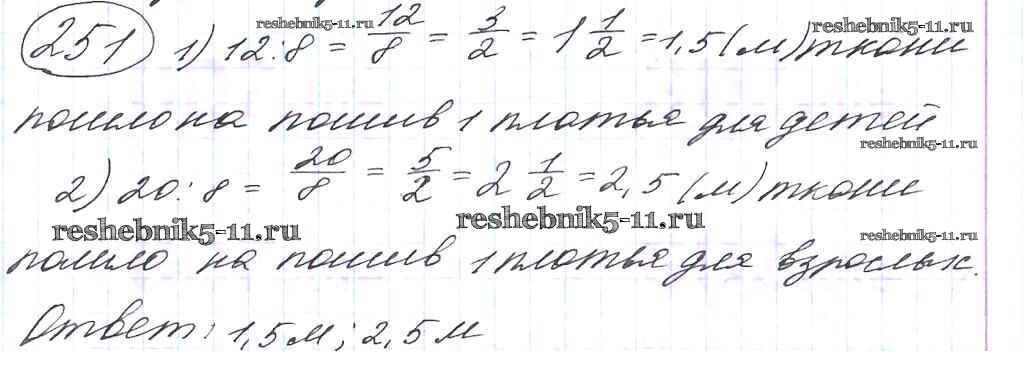 reshebnik5-11.ru
reshebnik5-11.ru
251 1) 12:8 = 12/8 = 3/2 = 1 1/2 = 1,5 (м) ткани
пошло на пошив 1 платья для детей
reshebnik5-11.ru
2) 20:8 = 20/8 = 5/2 = 2 1/2 = 2,5 (м) ткани
reshebnik5-11.ru
reshebnik5-11.ru
reshebnik5-11.ru
пошло на пошив 1 платья для взрослых.
Ответ: 1,5 м; 2,5 м